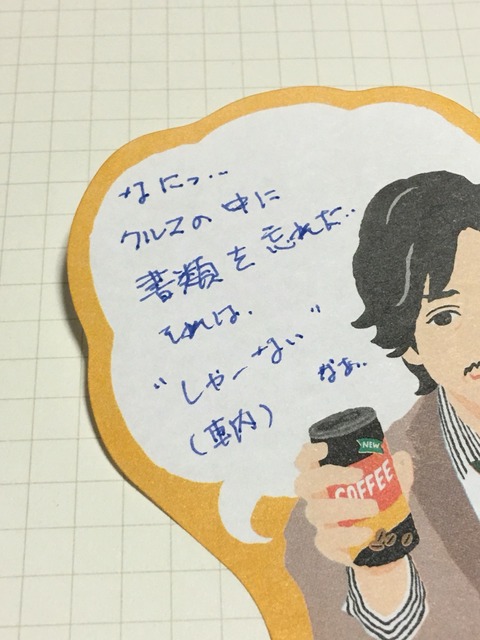 なにっ‥
クルマの中に
書類を忘れた‥
それは、
"しゃーない"
なぁ‥
(車内)
NEW
COFFEE